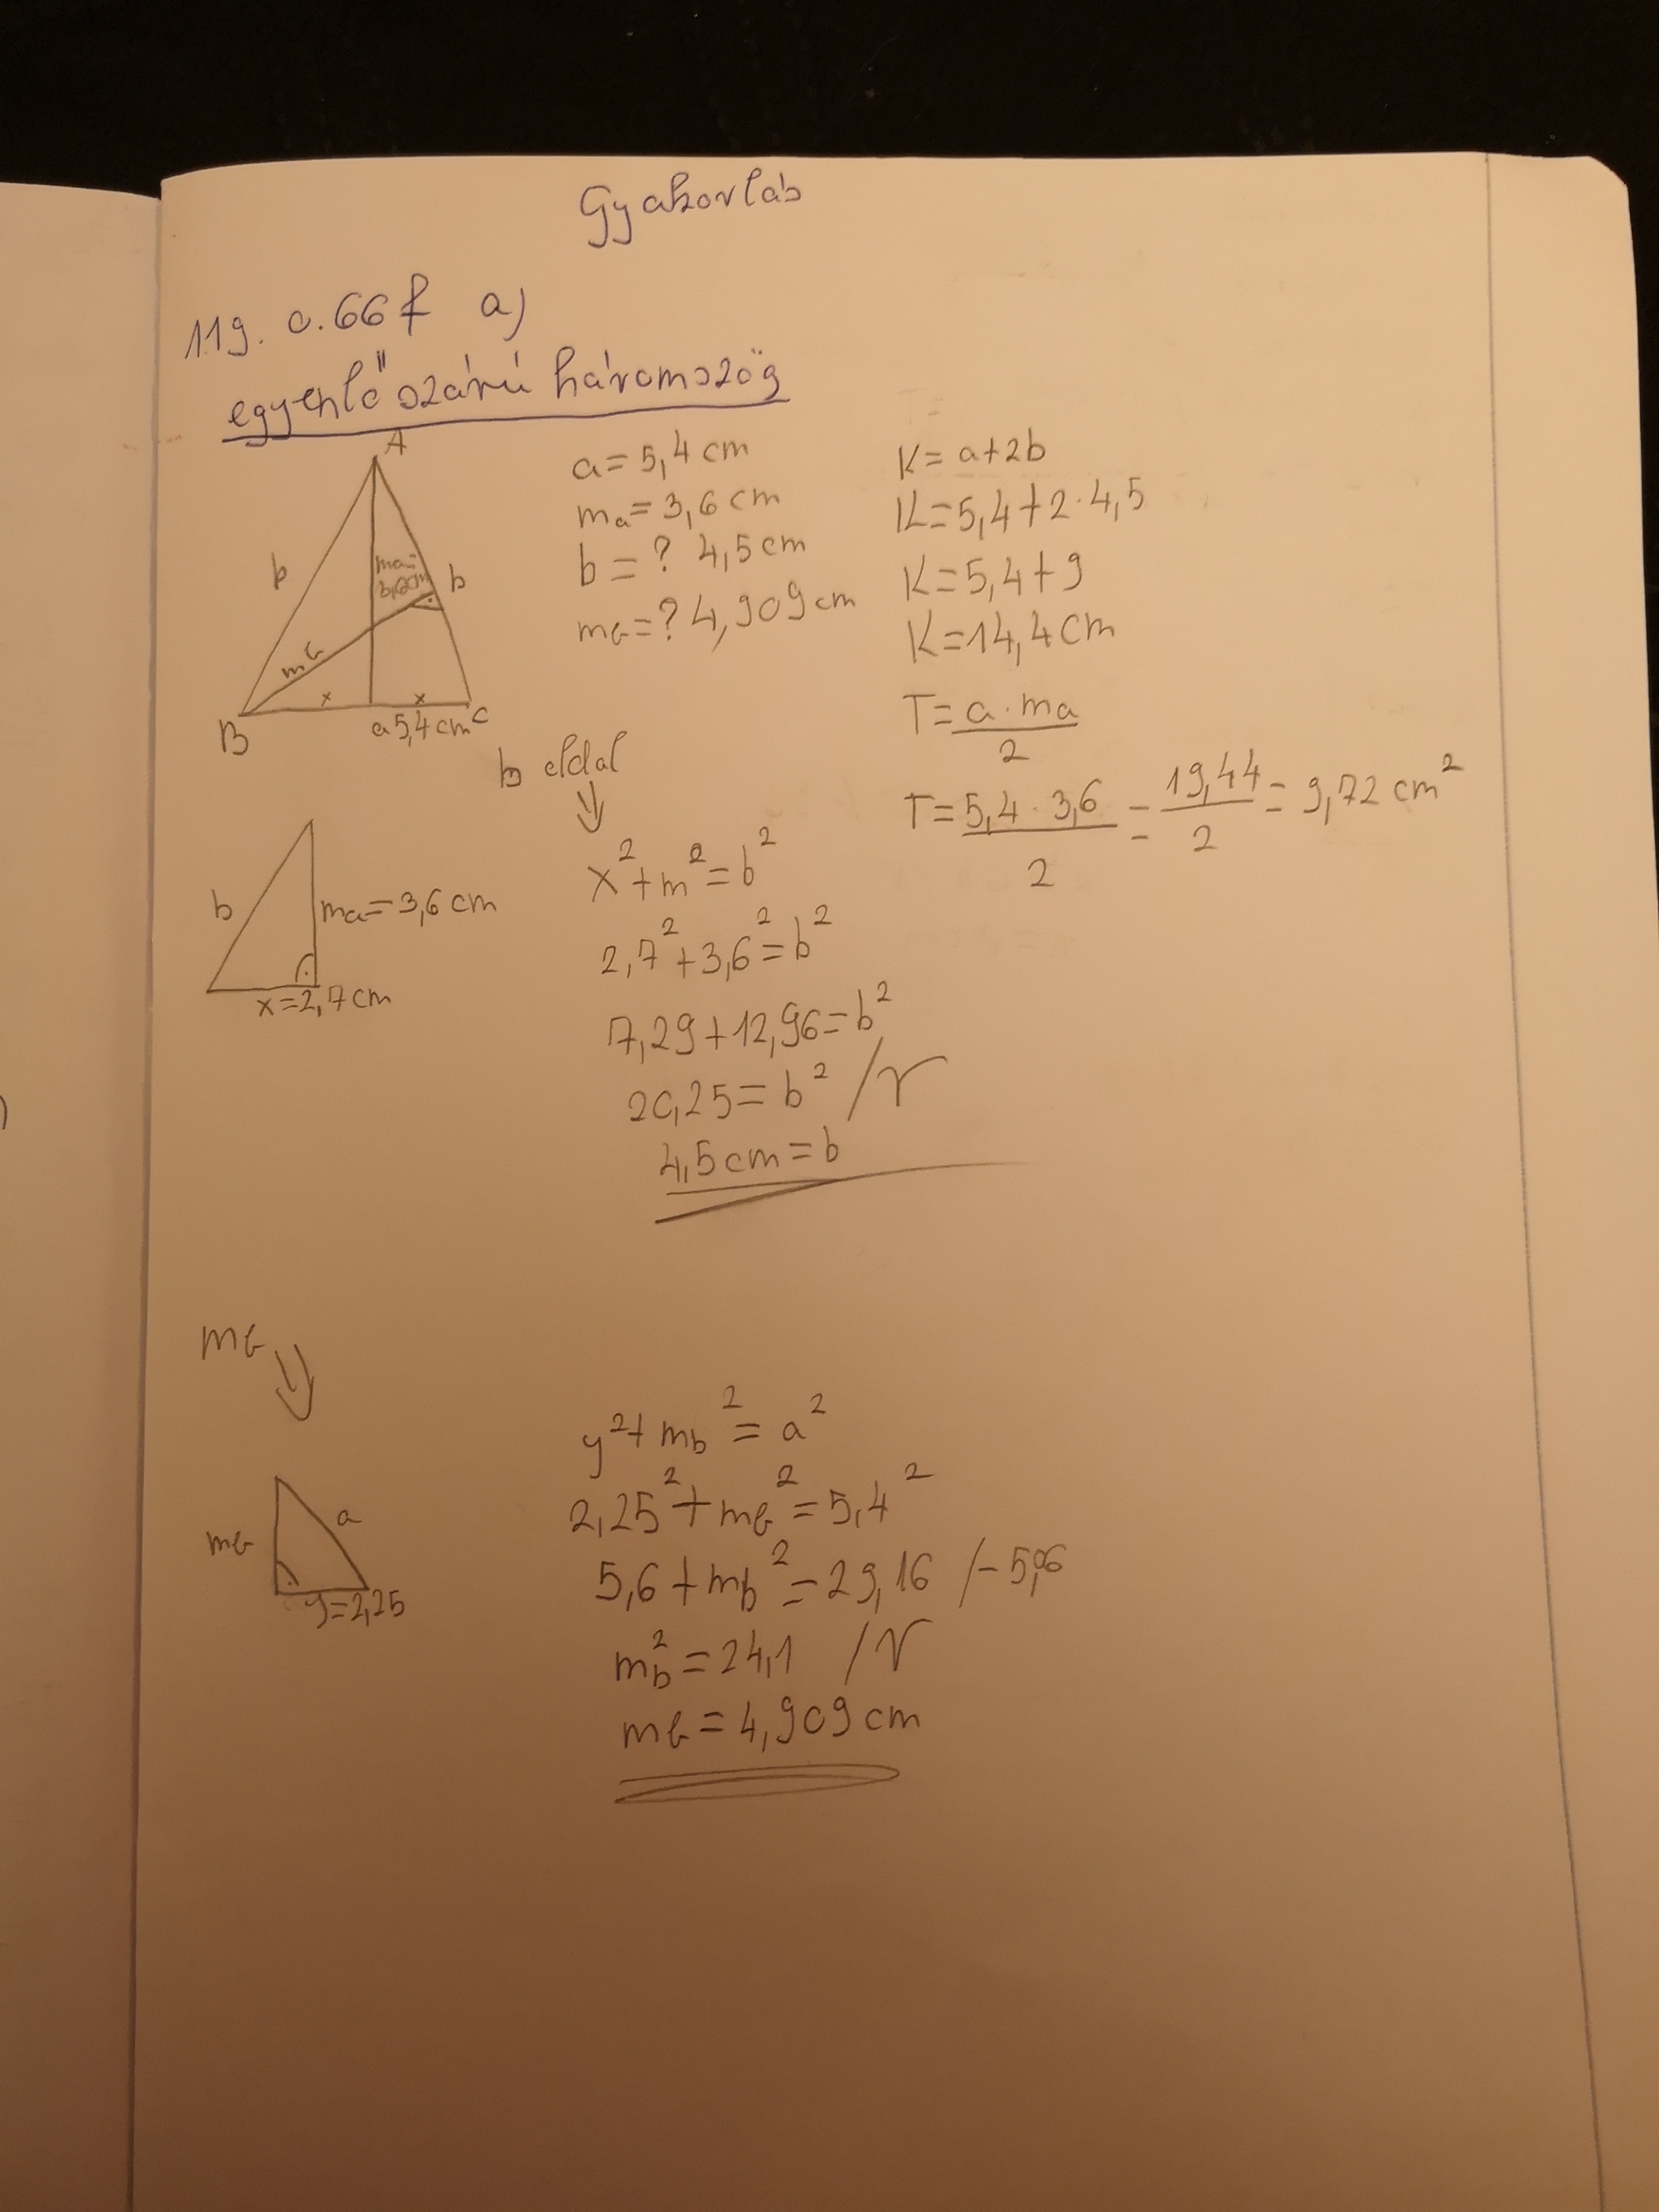 Gyakorlás
119. o. 66 f a)
egyenlő szárú háromszög
A
b
ma=
3,6cm
b
mb
x
x
B
a 5,4 cm
C
a = 5,4 cm
ma = 3,6 cm
b = ? 4,5 cm
mb = ? 4,909 cm
K = a+2b
K = 5,4+2·4,5
K = 5,4+9
K = 14,4 cm
T = a · ma / 2
T = 5,4 · 3,6 / 2 = 19,44 / 2 = 9,72 cm²
b oldal
b
ma = 3,6 cm
x = 2,7 cm
x² + m² = b²
2,7² + 3,6² = b²
7,29 + 12,96 = b²
20,25 = b² /√
4,5 cm = b
mb
mb
a
y = 2,25
y² + mb² = a²
2,25² + mb² = 5,4²
5,6 + mb² = 29,16 /-5,06
mb² = 24,1 /√
mb = 4,909 cm